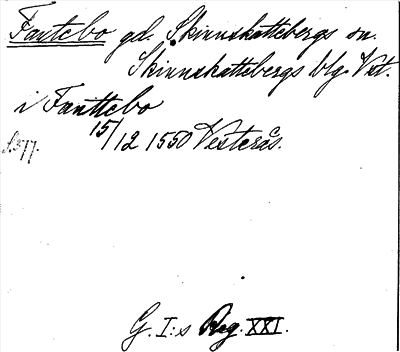 Fantebo gd. Skinnskattebergs sn.
Skinnskattebergs blg. Vst.
i Fanttebo
15/12 1550 Vesterås.
S. 577.
G. I:s Reg. XXI.